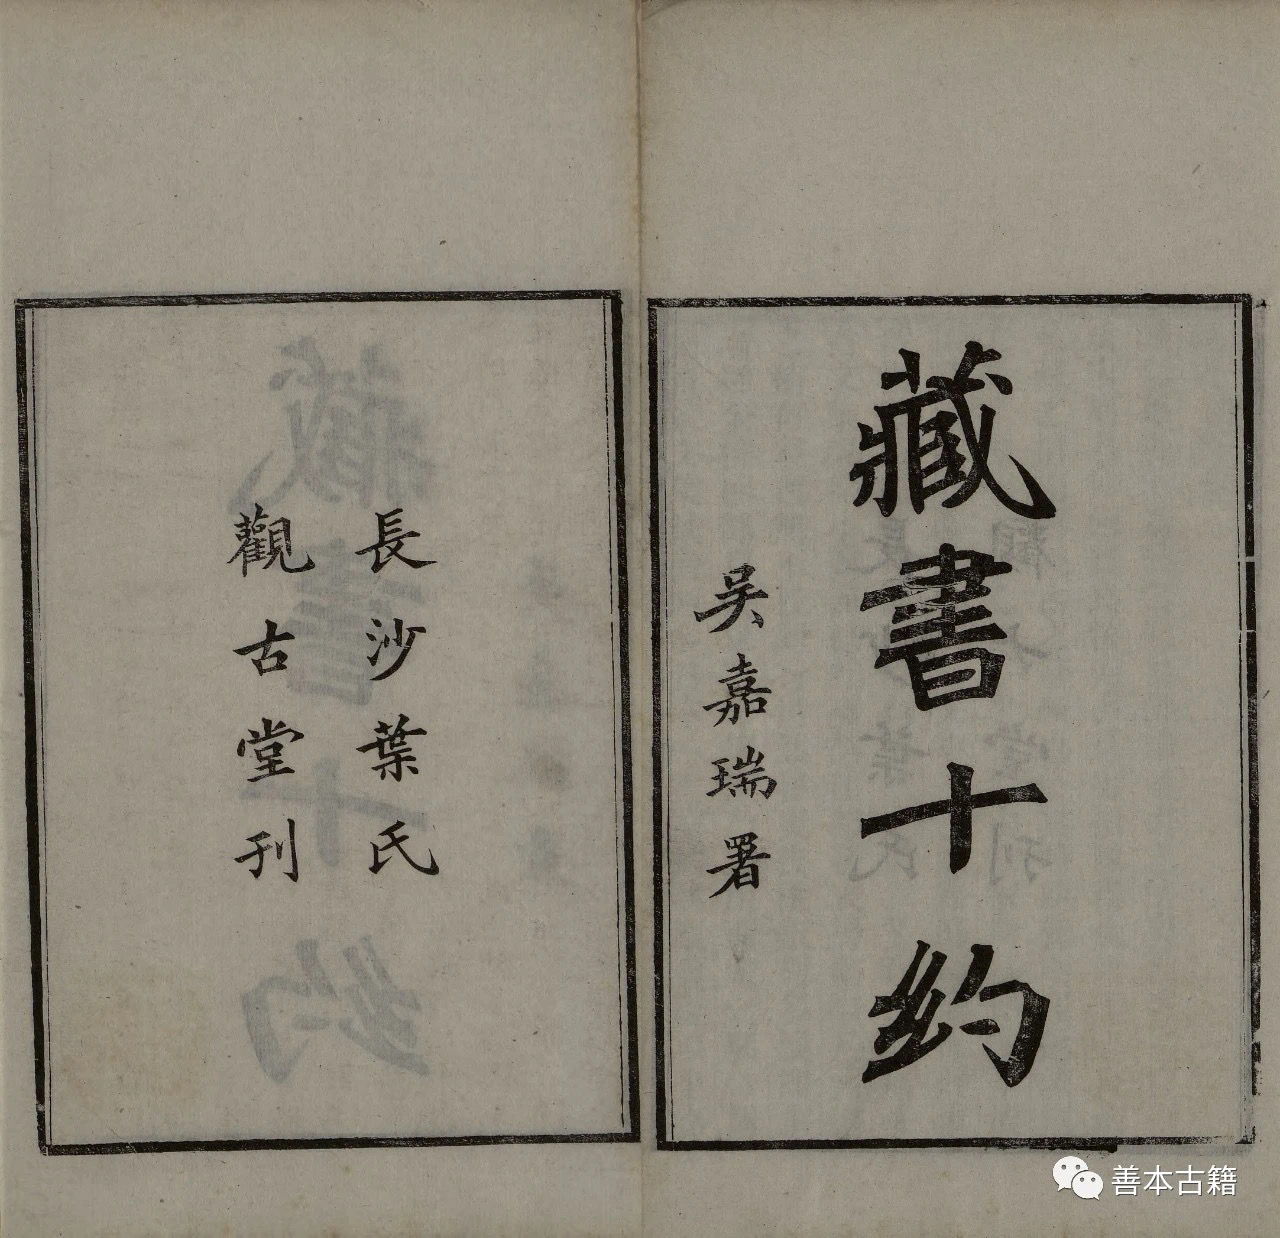 藏書十約
吴嘉瑞署
長沙葉氏
觀古堂刋
善本古籍